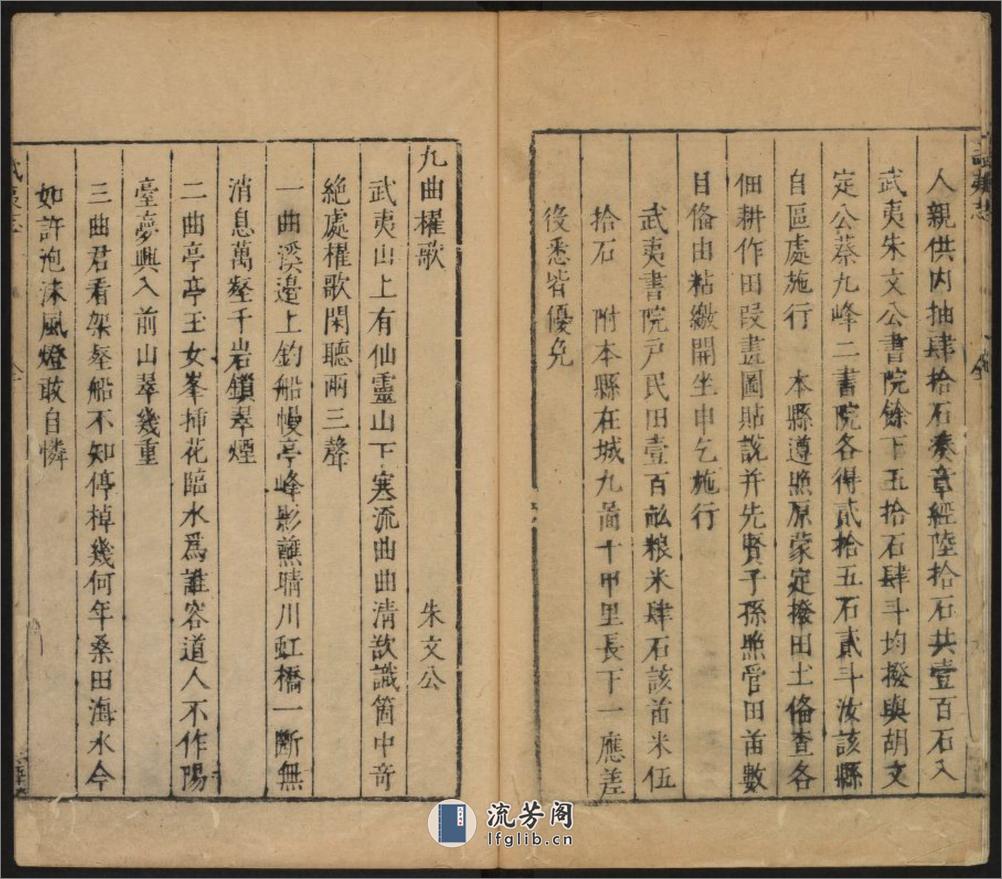 人親供内抽肆拾石奏章經陸拾石共壹百石入
武夷朱文公書院餘下五拾石肆斗均撥與胡文
定公蔡九峰二書院各得貳拾五石貳斗汝該縣
自區處施行　本縣遵照原蒙定撥田土俻查各
佃耕作田段畫圖貼說并先賢子孫照管田苗數
目俻由粘繳開坐申乞施行
武夷書院戸民田壹百畝粮米肆石該苗米伍
拾石　附本縣在城九啚十甲里長下一應差
役悉皆優免
九曲櫂歌　朱文公
武夷山上有仙靈山下寒流曲曲清欲識箇中竒
絶處櫂歌閑聽兩三聲
一曲溪邉上釣船幔亭峰影蘸晴川虹橋一斷無
消息萬壑千岩鎖翠煙
二曲亭亭玉女峯揷花臨水爲誰容道人不作陽
臺夢興入前山翠幾重
三曲君看架壑船不知停棹幾何年桑田海水今
如許泡沫風燈敢自憐
流芳阁
lfglib.cn